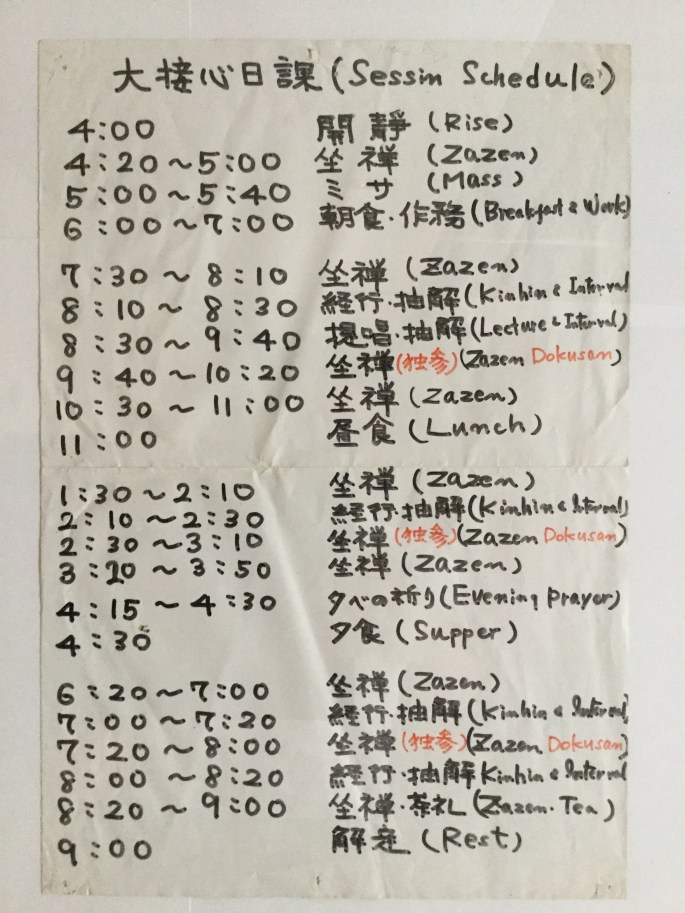 大接心日課 (Sessin Schedule)
4:00 開静 (Rise)
4:20 〜 5:00 坐禅 (Zazen)
5:00 〜 5:40 ミサ (Mass)
6:00 〜 7:00 朝食・作務 (Breakfast & Work)
7:30 〜 8:10 坐禅 (Zazen)
8:10 〜 8:30 経行・抽解 (Kinhin & Interval
8:30 〜 9:40 提唱・抽解 (Lecture & Interval)
9:40 〜 10:20 坐禅 (独参) (Zazen Dokusan)
10:30 〜 11:00 坐禅 (Zazen)
11:00 昼食 (Lunch)
1:30 〜 2:10 坐禅 (Zazen)
2:10 〜 2:30 経行・抽解 (Kinhin & Interval)
2:30 〜 3:10 坐禅 (独参) (Zazen Dokusan)
3:20 〜 3:50 坐禅 (Zazen)
4:15 〜 4:30 夕べの祈り (Evening Prayer)
4:30 夕食 (Supper)
6:20 〜 7:00 坐禅 (Zazen)
7:00 〜 7:20 経行・抽解 (Kinhin & Interval)
7:20 〜 8:00 坐禅 (独参) (Zazen Dokusan)
8:00 〜 8:20 経行・抽解 Kinhin & Interval
8:20 〜 9:00 坐禅・茶礼 (Zazen・Tea)
9:00 解定 (Rest)